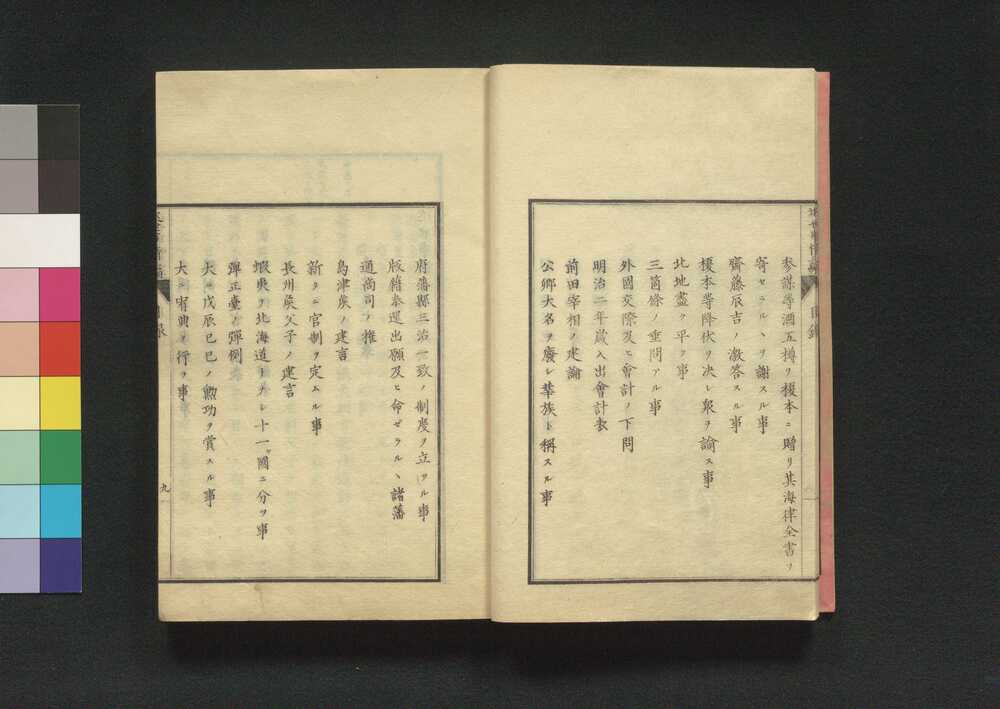 参謀等酒五樽ヲ榎本ニ贈リ其海律全書ヲ
寄セラルヽヲ謝スル事
齋藤辰吉ノ激答スル事
榎本等降伏ヲ决シ衆ヲ諭ス事
北地盡ク平ク事
三箇條ノ垂問アル事
外國交際及ヒ會計ノ下問
明治二年歳入出會計表
前田宰相ノ建論
公卿大名ヲ廢シ華族ト稱スル事
目録
府藩縣三治一致ノ制度ヲ立ツル事
版籍奉還出願及ヒ命ゼラルヽ諸藩
通商司ヲ推
島津矦ノ建言
新タニ官制ヲ定ムル事
長州矦父子ノ建言
蝦夷ヲ北海道トナシ十一ヶ國ニ分ツ事
彈正臺ノ彈例
大 戊辰己巳ノ勲功ヲ賞スル事
大 宥典ヲ行ヲ事
目録
九